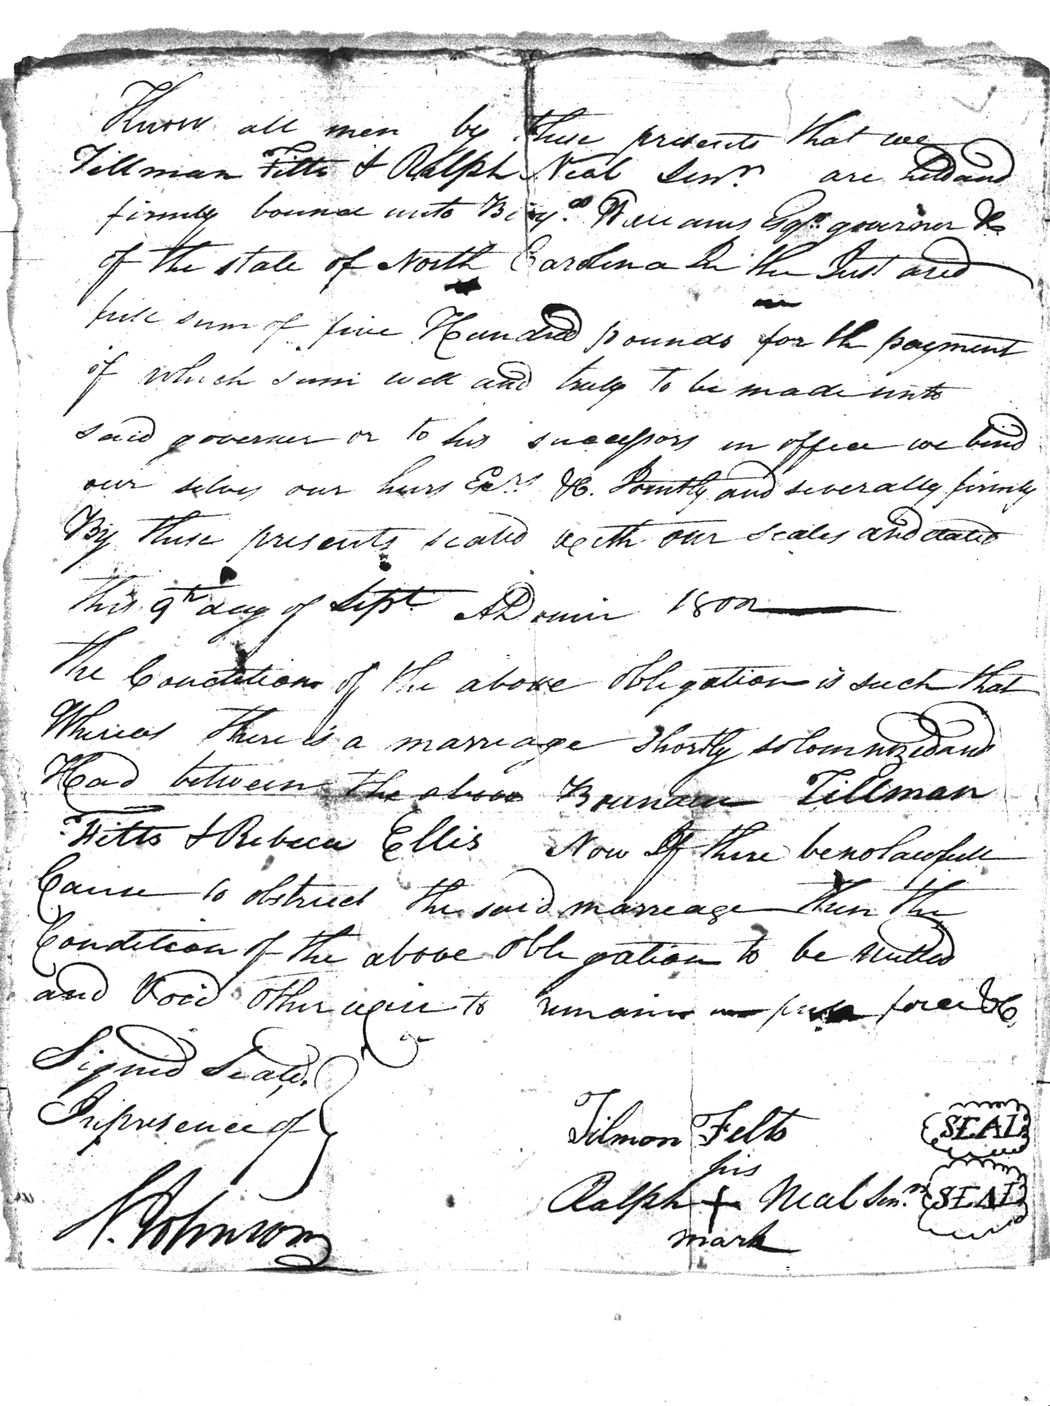 Know all men by these presents that we
Tillman Fitts & Ralph Neal Senr. are held and
firmly bound unto Benjn. Williams Esqr. governer &c
of the state of North Carolina In the Just and
full sum of five Hundred pounds for th payment
of which sum well and truly to be made unto
said governer or to his successors in office we bind
our selves our heirs Exrs. &c. Jointly and severally firmly
By these presents sealed with our seales and dated
this 9th day of Sept. ADomin 1800
The Condition of the above obligation is such that
Whereas there is a marreage shortly solomnized and
Had between the above Bounden Tillman
Fitts & Rebeca Ellis Now If there be no lawfull
Cause to obstruct the said marreage then the
Condition of the above obligation to be nulled
and Void other wise to remain in full force &c.
Signed Seald.
In presence of
Tilmon Felts SEAL
his
Ralph + Neal Senr. SEAL
mark
N. Johnson